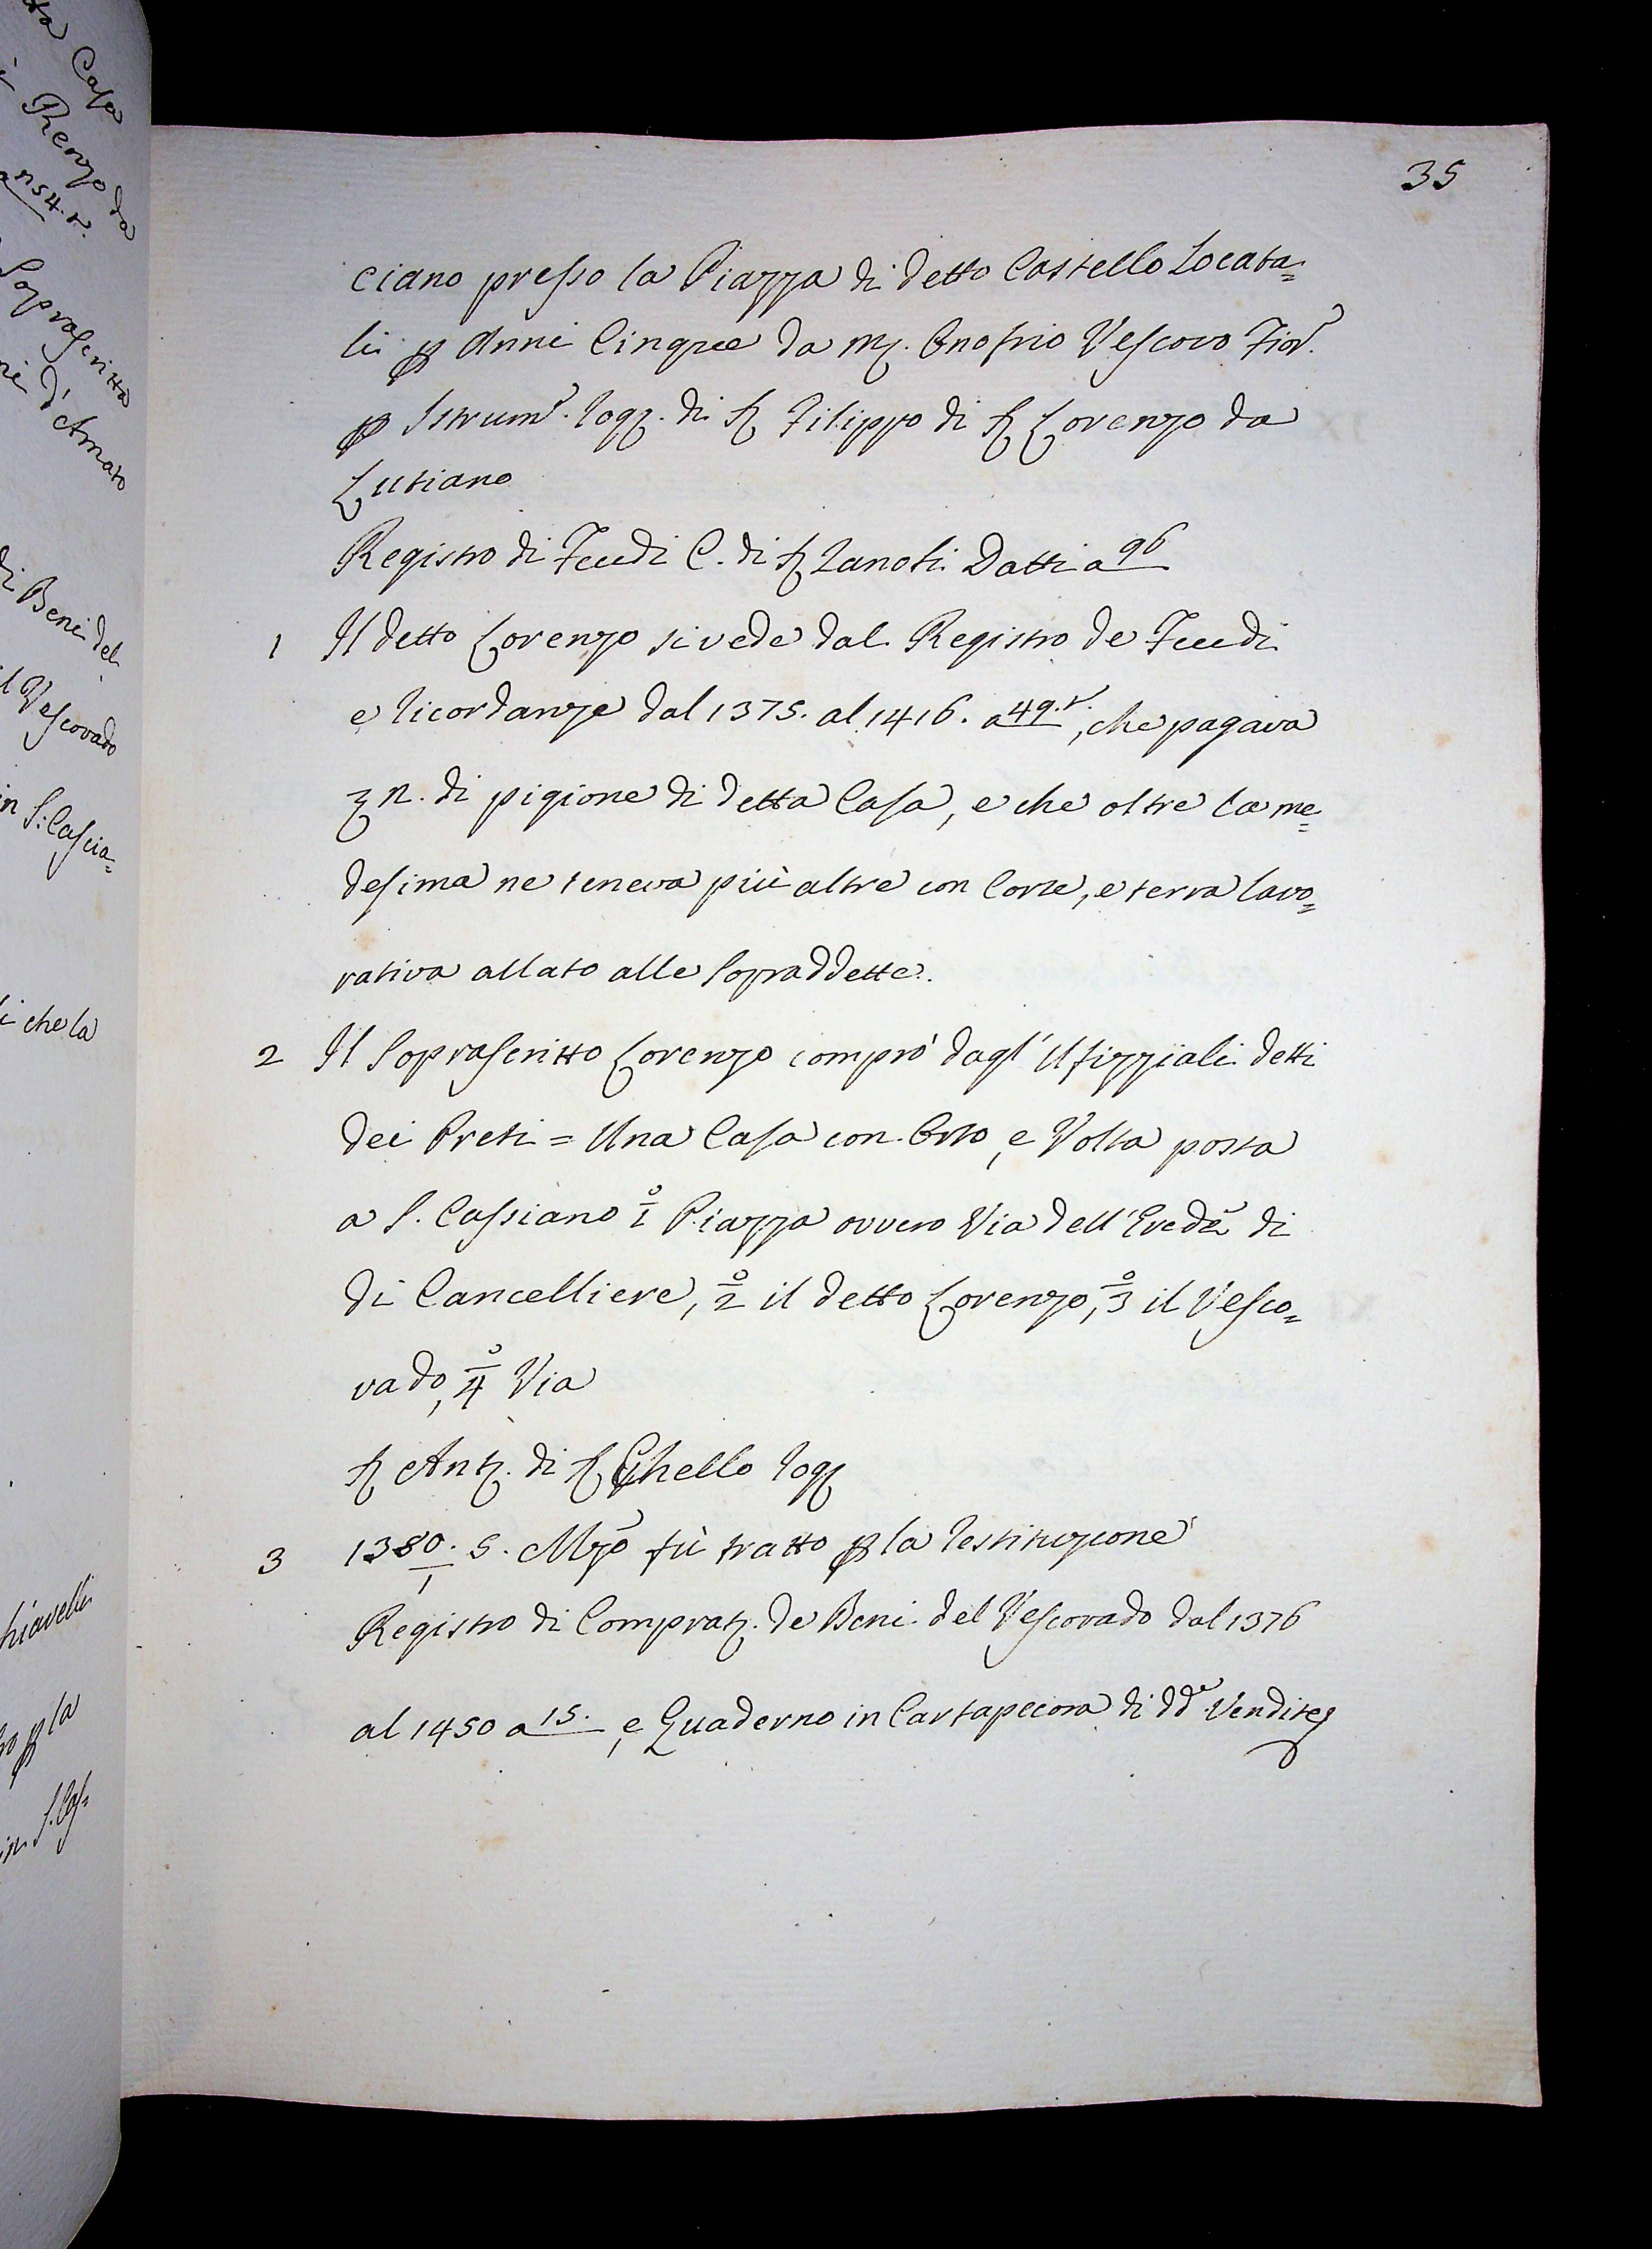 35
ciano presso la Piazza di detto Castello Locata=
li p Anni Cinque da M. Onofrio Vescovo Fior.
p Istrum. rog. di S Filippo di S Lorenzo da
Lutiano
Registro di Feudi C. di S Zanobi Datti a 96
1 Il detto Lorenzo si vede dal Registro de Feudi
e ricordanze dal 1375. al 1416. a 49.t., che pagava
n. di pigione di detta Casa, e che oltre la me=
desima ne teneva più altre con Corte, e terra lavo=
rativa allato alle Sopraddette.
2 Il Soprascritto Lorenzo comprò dagl' Ufizziali detti
dei Preti = Una Casa con Orto, e Volta posta
a S. Cassiano 1º Piazza ovvero Via dell' Erede di
di Cancelliere, 2º il detto Lorenzo, 3º il Vesco=
vado, 4º Via
S Ant. di S Ghello rog
3 1380/1. 5. Mzo fù tratto p la restituzione
Registro di Comprat. de Beni del Vescovado dal 1376
al 1450 a 15. , e Quaderno in Cartapecora di dde Vendite
Casa
Renzo da
a 154.t.
Soprascritto
ni d'Amato
di Beni del
il Vescovado
in S. Cascia=
i che la
hiavelli
p la
in S. Cas=